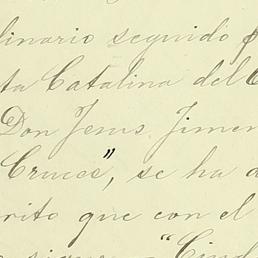 linario seguido p
ta Catalina del C
Don Jesus Jimen
Cruces", se ha d
rito que con el
sigue — "Ciud